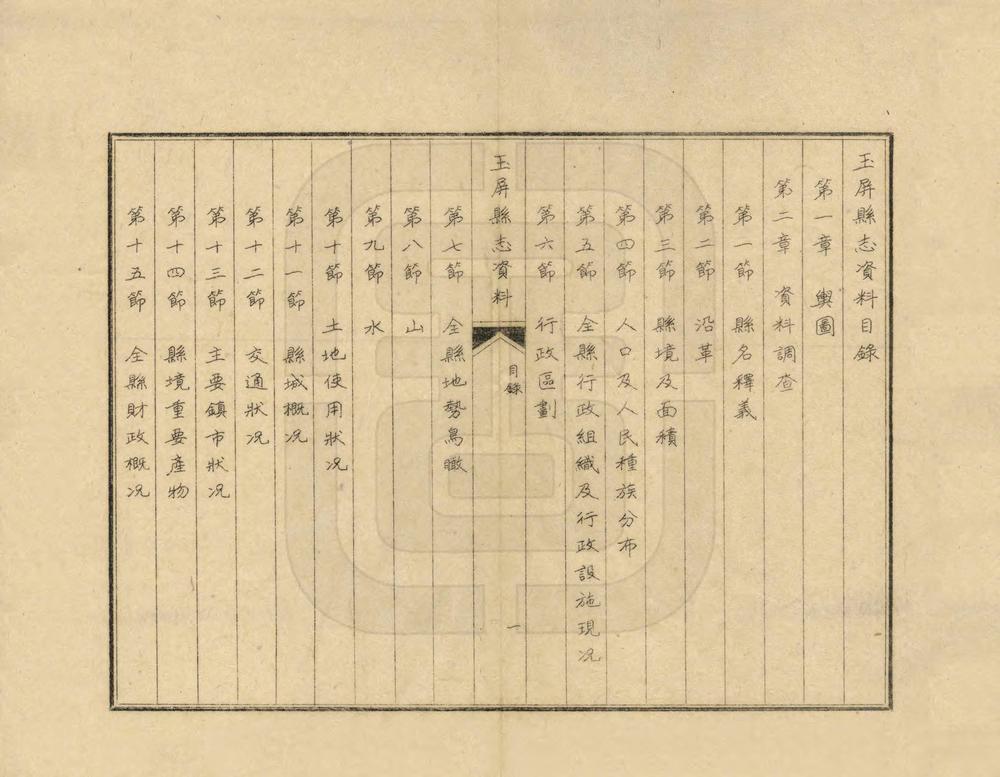 玉屏縣志資料目錄
第一章 輿圖
第二章 資料調查
第一節 縣名釋義
第二節 沿革
第三節 縣境及面積
第四節 人口及人民種族分布
第五節 全縣行政組織及行政設施現况
第六節 行政區劃
玉屏縣志資料 目錄 一
第七節 全縣地勢鳥瞰
第八節 山
第九節 水
第十節 土地使用狀况
第十一節 縣城概况
第十二節 交通狀况
第十三節 主要鎮市狀况
第十四節 縣境重要產物
第十五節 全縣財政概况